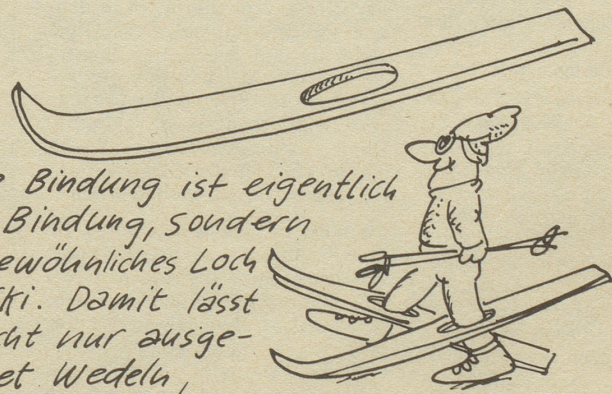 Bindung ist eigentlich
Bindung, sondern
ewöhnliches Loch
ki. Damit lässt
cht nur ausge-
et Wedeln,